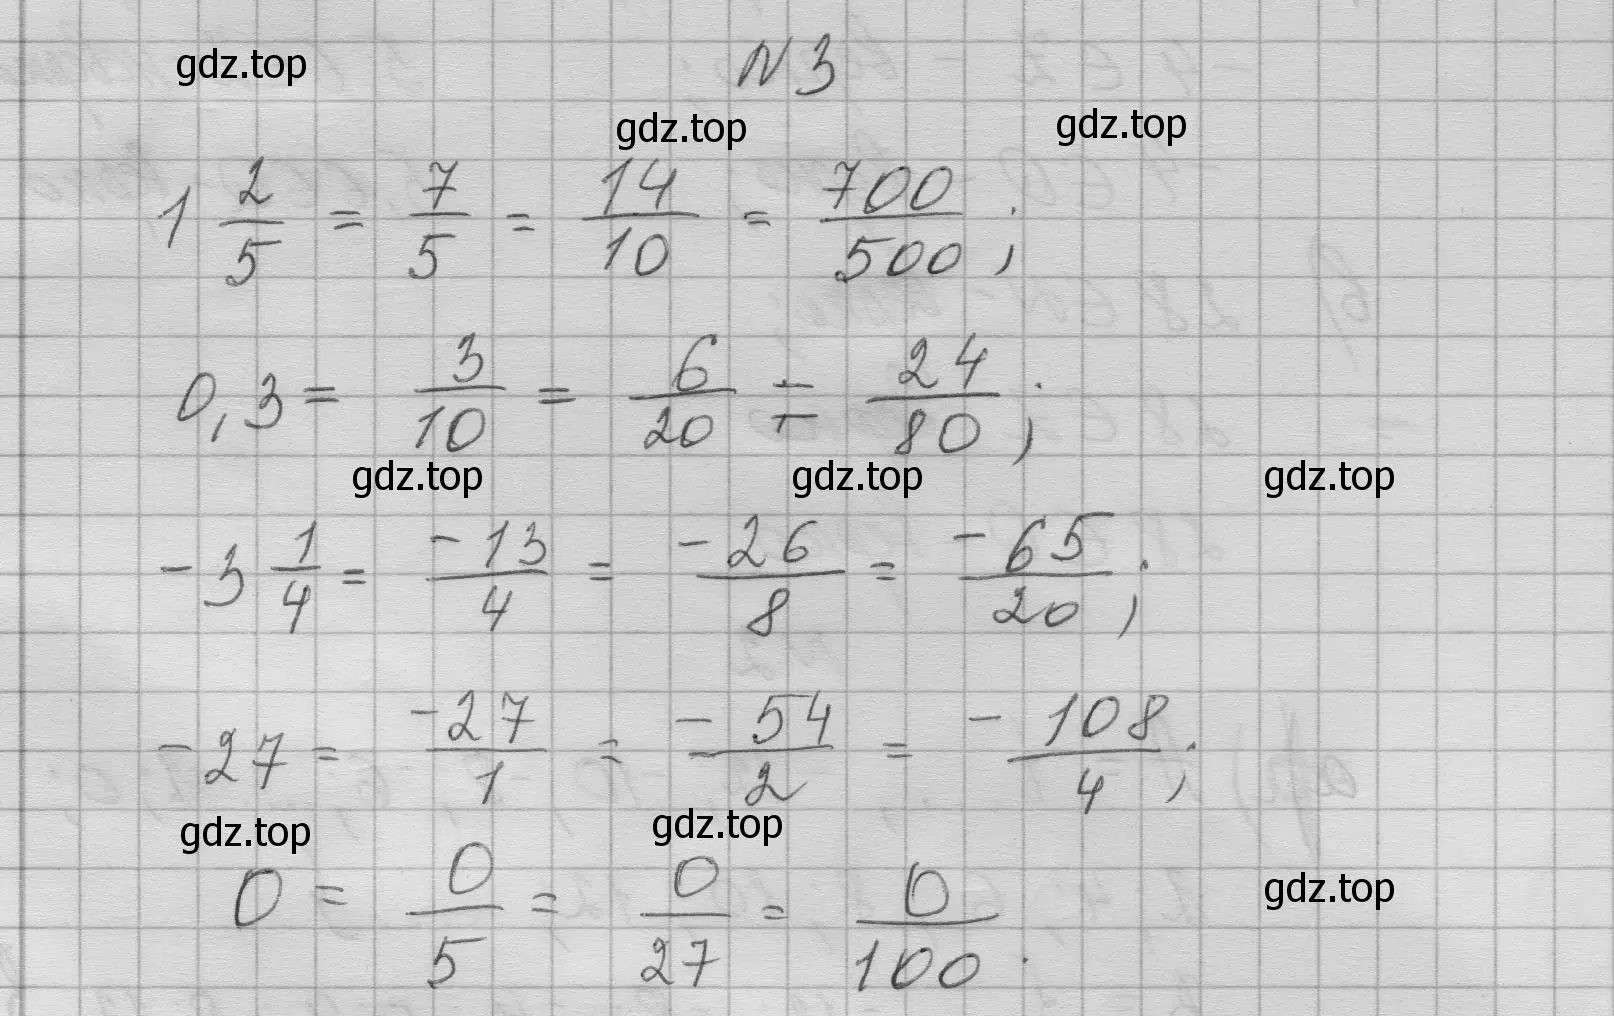 gdz.top
N 3
gdz.top gdz.top
1 2/5 = 7/5 = 14/10 = 700/500 ;
0,3 = 3/10 = 6/20 = 24/80 ;
gdz.top gdz.top gdz.top
-3 1/4 = -13/4 = -26/8 = -65/20 ;
-27 = -27/1 = -54/2 = -108/4 ;
gdz.top gdz.top
0 = 0/5 = 0/27 = 0/100 .
gdz.top